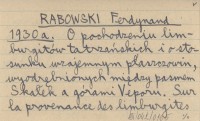 RABOWSKI Ferdynand
1930a. O pochodzeniu lim-
burgitów tatrzańskich i o sto-
sunku wzajemnym płaszczowin,
wyodrębnionych między pasmem
Skałek a górami Veporu. Sur
la provenance des limburgites